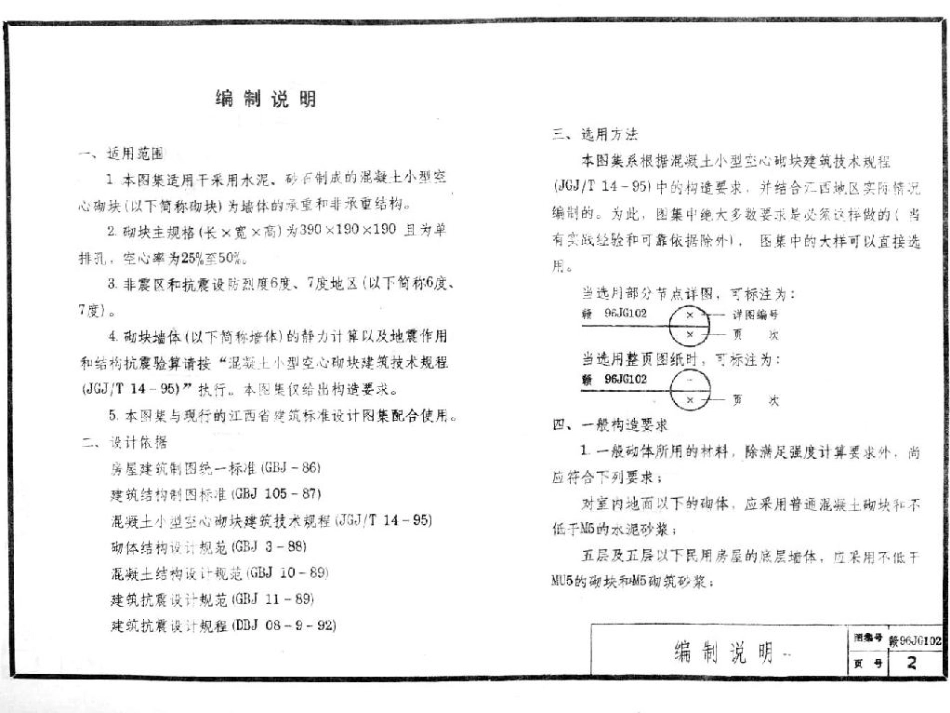 编制说明
一、适用范围
1.本图集适用于采用水泥、砂石制成的混凝土小型空
心砌块(以下简称砌块)为墙体的承重和非承重结构。
2.砌块主规格(长×宽×高)为390×190×190 且为单
排孔，空心率为25%至50%。
3.非震区和抗震设防烈度6度、7度地区(以下简称6度、
7度)。
4.砌块墙体(以下简称墙体)的静力计算以及地震作用
和结构抗震验算请按“混凝土小型空心砌块建筑技术规程
(JGJ/T 14-95)”执行。本图集仅给出构造要求。
5.本图集与现行的江西省建筑标准设计图集配合使用。
二、设计依据
房屋建筑制图统一标准(GBJ-86)
建筑结构制图标准(GBJ 105-87)
混凝土小型空心砌块建筑技术规程(JGJ/T 14-95)
砌体结构设计规范(GBJ 3-88)
混凝土结构设计规范(GBJ 10-89)
建筑抗震设计规范(GBJ 11-89)
建筑抗震设计规程(DBJ 08-9-92)
三、选用方法
本图集系根据混凝土小型空心砌块建筑技术规程
(JGJ/T 14-95)中的构造要求，并结合江西地区实际情况
编制的。为此，图集中绝大多数要求是必须这样做的(当
有实践经验和可靠依据除外)，图集中的大样可以直接选
用。
当选用部分节点详图，可标注为：
赣 96JG102 × 详图编号
× 页 次
当选用整页图纸时，可标注为：
赣 96JG102 -
× 页 次
四、一般构造要求
1.一般砌体所用的材料，除满足强度计算要求外，尚
应符合下列要求；
对室内地面以下的砌体，应采用普通混凝土砌块和不
低于M5的水泥砂浆；
五层及五层以下民用房屋的底层墙体，应采用不低于
MU5的砌块和M5砌筑砂浆；
编制说明 图集号 赣96JG102
页 号 2